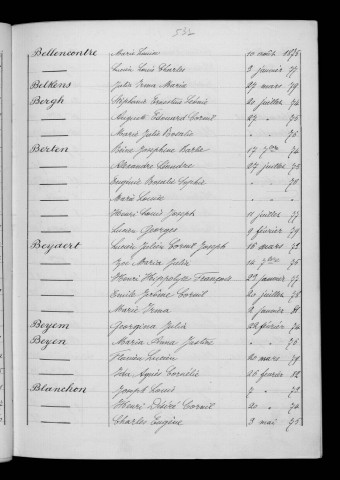 532
Bellencontre Marie Louise 10 août 1875
— Lucien Louis Charles 3 janvier 77
Belkens Julie Irma Maria 27 mars 79
Bergh Stéphanie Ernestine Léonie 20 juillet 74
— August Edouard Corneil 27 " 75
— Marie Julie Rosalie " " 76
Berten Reine Joséphine Barbe 17 7bre 74
— Alexandre Léandre 27 juillet 75
— Eugénie Rosalie Sophie " " 78
— Marie Louise " "
— Henri Louis Joseph 11 juillet 77
— Lucien Georges 9 février 79
Beydert Lucien Julien Corneil Joseph 18 mars 73
— Zoé Maria Julie 14 7bre 75
— Henri Hippolyte François 23 janvier 77
— Emile Jérôme Corneil 20 juillet 78
— Marie Irma 2 janvier 81
Beyem Georgina Julia 22 février 74
Beyen Maria Anna Justine " " 76
— Lucien 20 mars 79
— Agnès Cornélie 26 février 82
Blanchon Joseph Louis 7 " 73
— Henri Désiré Corneil 20 " 74
— Charles Eugène 3 mai 75